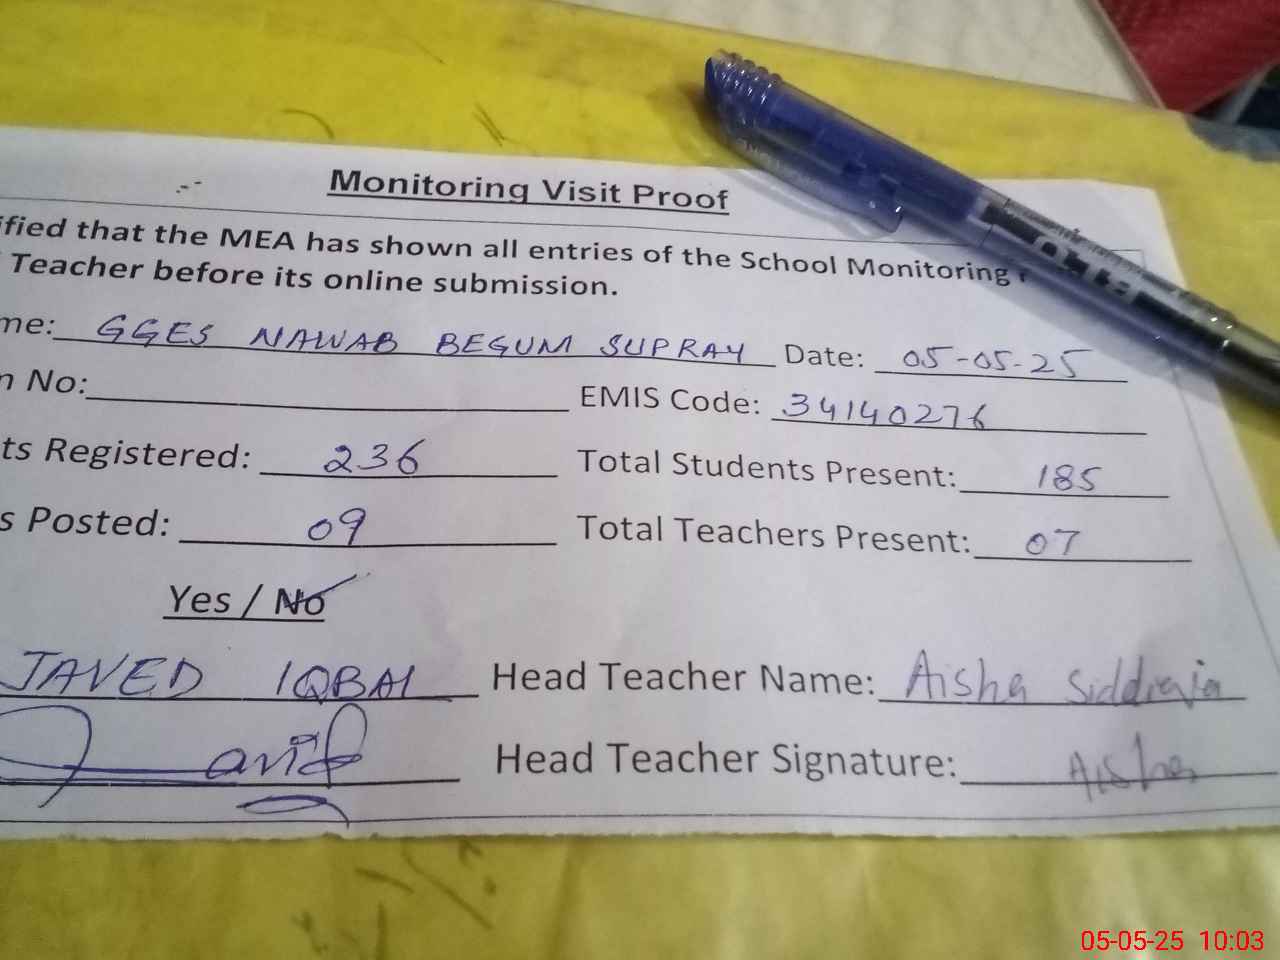 Monitoring Visit Proof
ified that the MEA has shown all entries of the School Monitoring
Teacher before its online submission.
me: GGES NAWAB BEGUM SUPRAY Date: 05-05-25
n No: EMIS Code: 34140276
ts Registered: 236 Total Students Present: 185
s Posted: 09 Total Teachers Present: 07
Yes / No
JAVED IQBAL Head Teacher Name: Aisha Siddiqia
Head Teacher Signature: Aisha
05-05-25 10:03